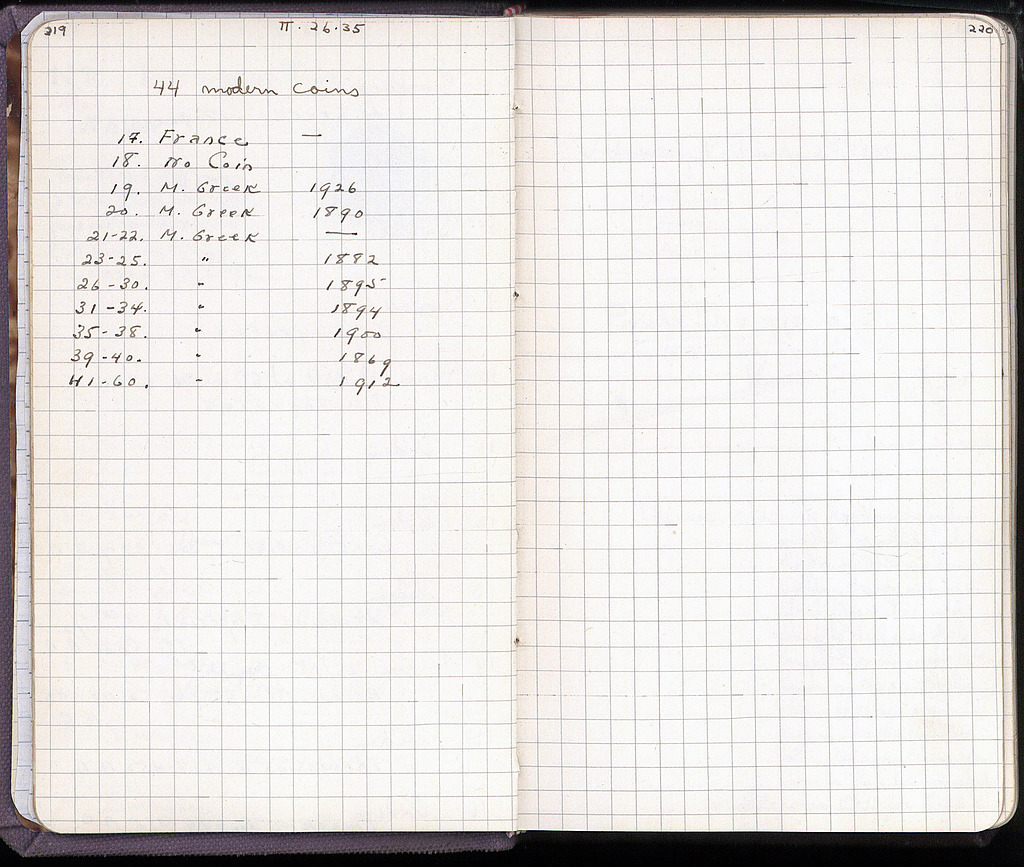 219
II · 26·35
220
44 modern coins
17. France —
18. No Coin
19. M. Greek 1926
20. M. Greek 1890
21-22. M. Greek —
23-25. " 1882
26-30. " 1895
31-34. " 1894
35-38. " 1900
39-40. " 1869
41-60. " 1912